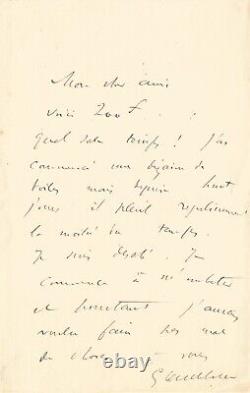 Mon cher ami
voici 200 F.
Quel sale temps ! J'ai
commencé une dizaine de
toiles mais depuis huit
jours il pleut regulierement
la moitié du temps.
Je suis désolé. Je
commence à m'embêter
et pourtant j'aurais
voulu faire pas mal
de choses
© thebluecase.com